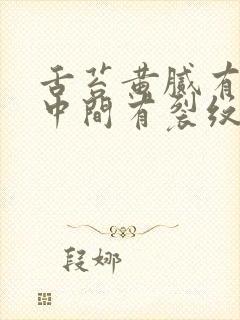 舌苔黄腻有
中间有裂纹
段娜